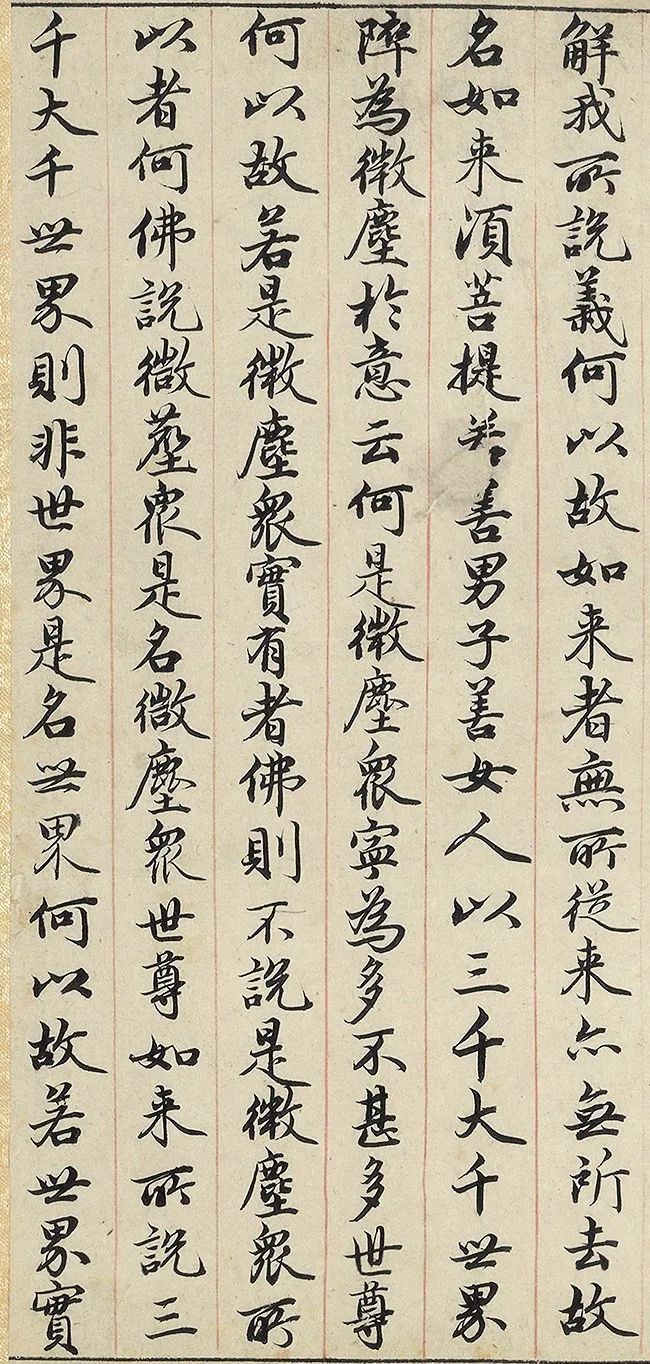 解我所說義何以故如来者無所從来亦無所去故
名如来湏菩提若善男子善女人以三千大千世界
碎為微塵於意云何是微塵衆寧為多不甚多世尊
何以故若是微塵衆實有者佛則不說是微塵衆所
以者何佛說微塵衆是名微塵衆世尊如来所說三
千大千世界則非世界是名世界何以故若世界實